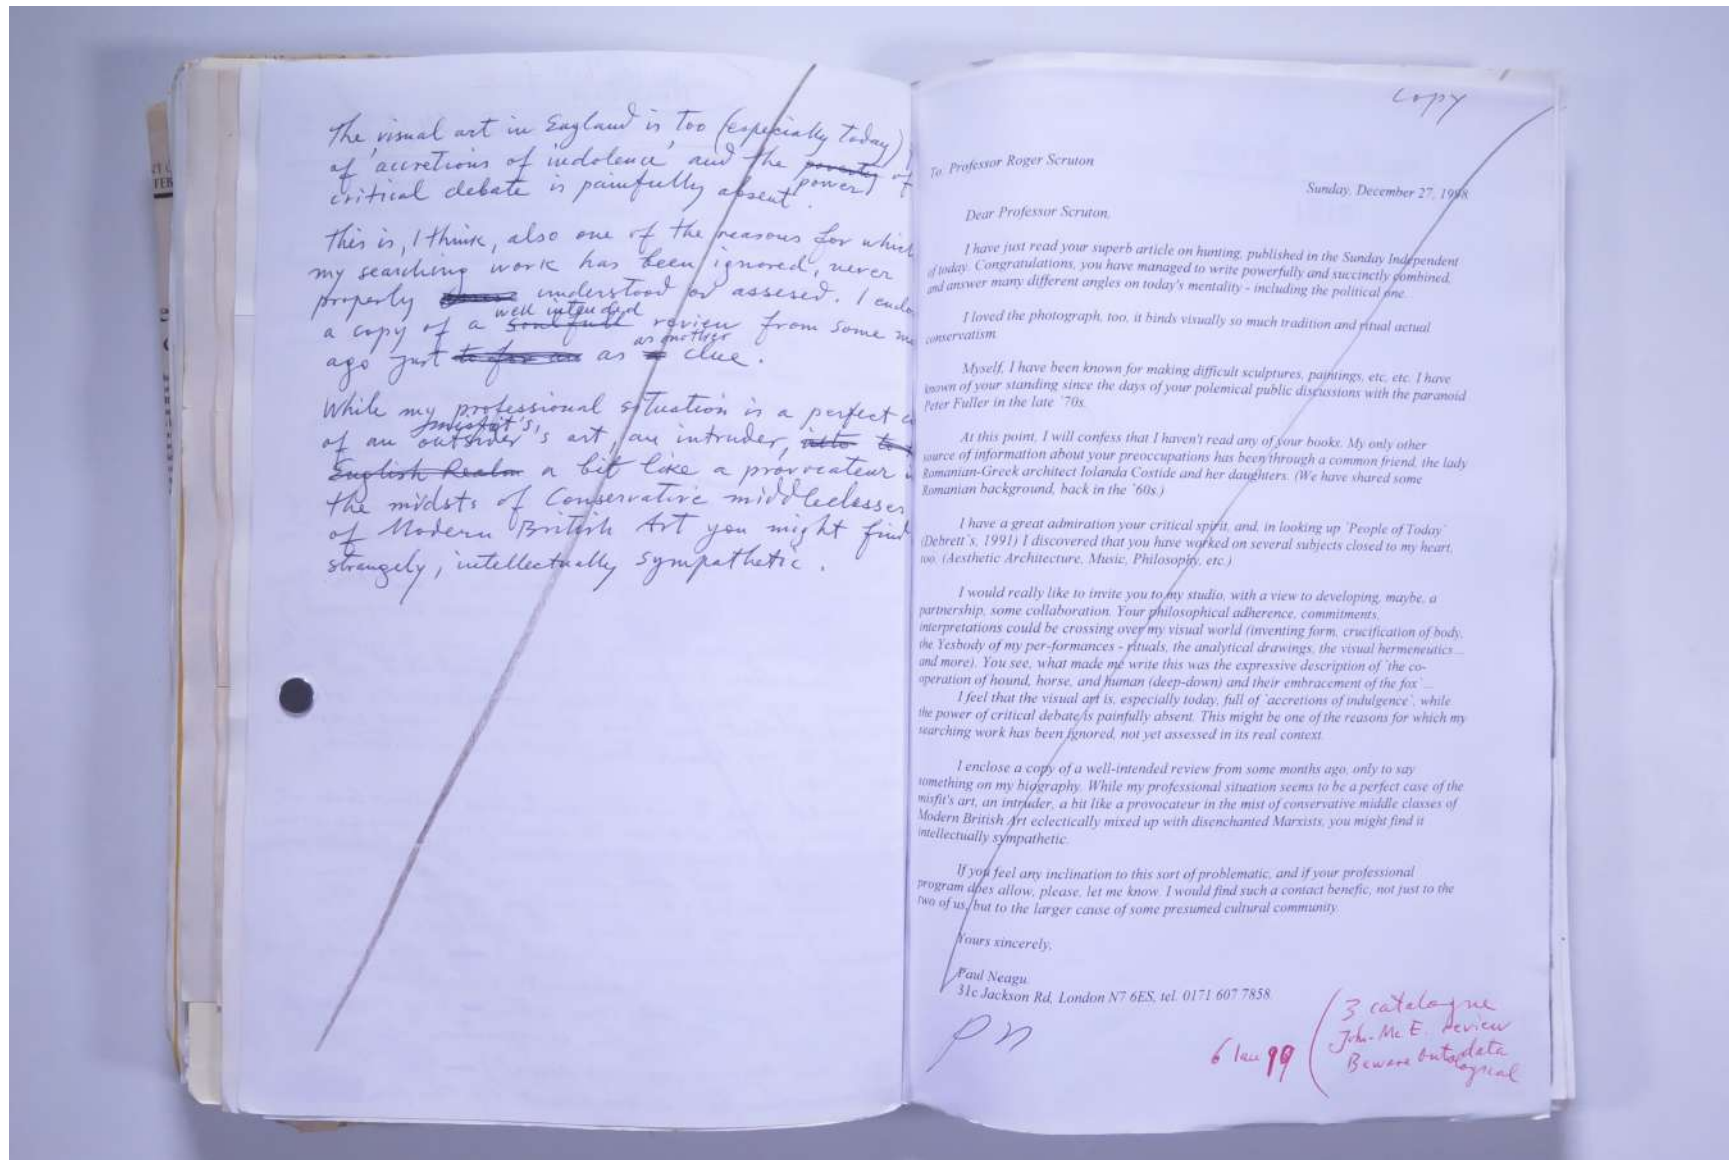 The visual art in England is too (especially today)
of 'accretions of indolence' and the poverty of
power
critical debate is painfully absent.
This is, I think, also one of the reasons for which
my searching work has been ignored, never
properly understood or assesed. I
well intended
a copy of a soulfull review from some
as another
ago just as clue.
While my professional situation is a perfect
misfit's
of an outsider's art, an intruder,
English Realm a bit like a provocateur
the midsts of Conservative middleclasses
of Modern British Art you might find
strangely, intellectually sympathetic.
Copy
To Professor Roger Scruton
Sunday, December 27, 1998
Dear Professor Scruton,
I have just read your superb article on hunting, published in the Sunday Independent
of today. Congratulations, you have managed to write powerfully and succinctly combined,
and answer many different angles on today's mentality - including the political one.
I loved the photograph, too, it binds visually so much tradition and ritual actual
conservatism.
Myself, I have been known for making difficult sculptures, paintings, etc, etc. I have
known of your standing since the days of your polemical public discussions with the paranoid
Peter Fuller in the late `70s.
At this point, I will confess that I haven't read any of your books. My only other
source of information about your preoccupations has been through a common friend, the lady
Romanian-Greek architect Iolanda Costide and her daughters. (We have shared some
Romanian background, back in the `60s.)
I have a great admiration your critical spirit, and, in looking up `People of Today`
(Debrett`s, 1991) I discovered that you have worked on several subjects closed to my heart,
too, (Aesthetic Architecture, Music, Philosophy, etc.)
I would really like to invite you to my studio, with a view to developing, maybe, a
partnership, some collaboration. Your philosophical adherence, commitments,
interpretations could be crossing over my visual world (inventing form, crucification of body,
the Yesbody of my per-formances - rituals, the analytical drawings, the visual hermeneutics...
and more). You see, what made me write this was the expressive description of `the co-
operation of hound, horse, and human (deep-down) and their embracement of the fox`...
I feel that the visual art is, especially today, full of `accretions of indulgence`, while
the power of critical debate is painfully absent. This might be one of the reasons for which my
searching work has been ignored, not yet assessed in its real context.
I enclose a copy of a well-intended review from some months ago, only to say
something on my biography. While my professional situation seems to be a perfect case of the
misfit's art, an intruder, a bit like a provocateur in the mist of conservative middle classes of
Modern British Art eclectically mixed up with disenchanted Marxists, you might find it
intellectually sympathetic.
If you feel any inclination to this sort of problematic, and if your professional
program does allow, please, let me know. I would find such a contact benefic, not just to the
two of us, but to the larger cause of some presumed cultural community.
Yours sincerely,
Paul Neagu.
31c Jackson Rd, London N7 6ES, tel. 0171 607 7858
pn
6 Jan 99
3 catalogue
John Mc. E. review
Beware data